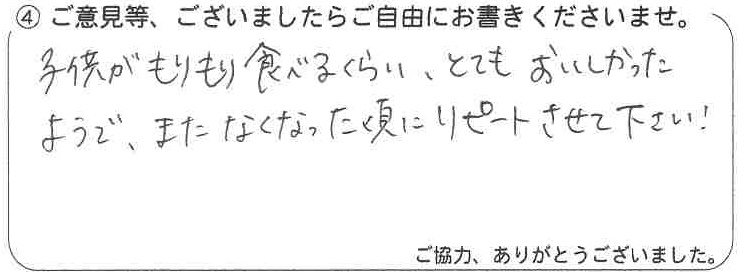 ④ ご意見等、ございましたらご自由にお書きくださいませ。
子供がもりもり食べるくらい、とても おいしかった
ようで、また なくなった頃に リピートさせて下さい！
ご協力、ありがとうございました。